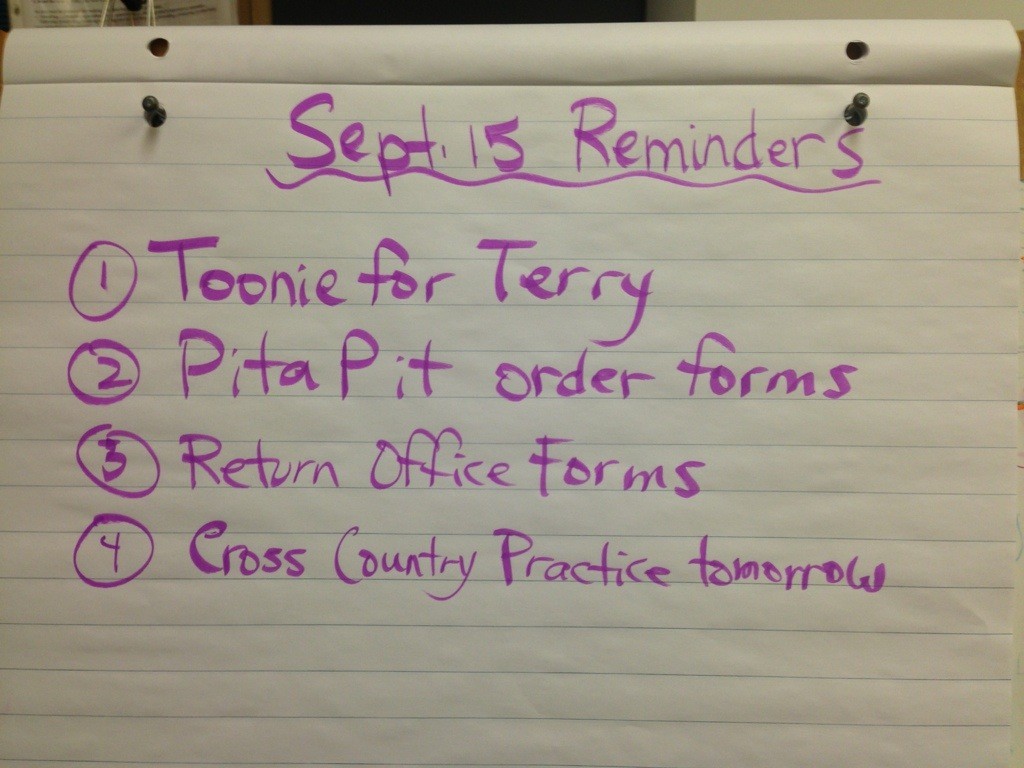 Sept. 15 Reminders
1 Toonie for Terry
2 Pita Pit order forms
3 Return Office Forms
4 Cross Country Practice tomorrow